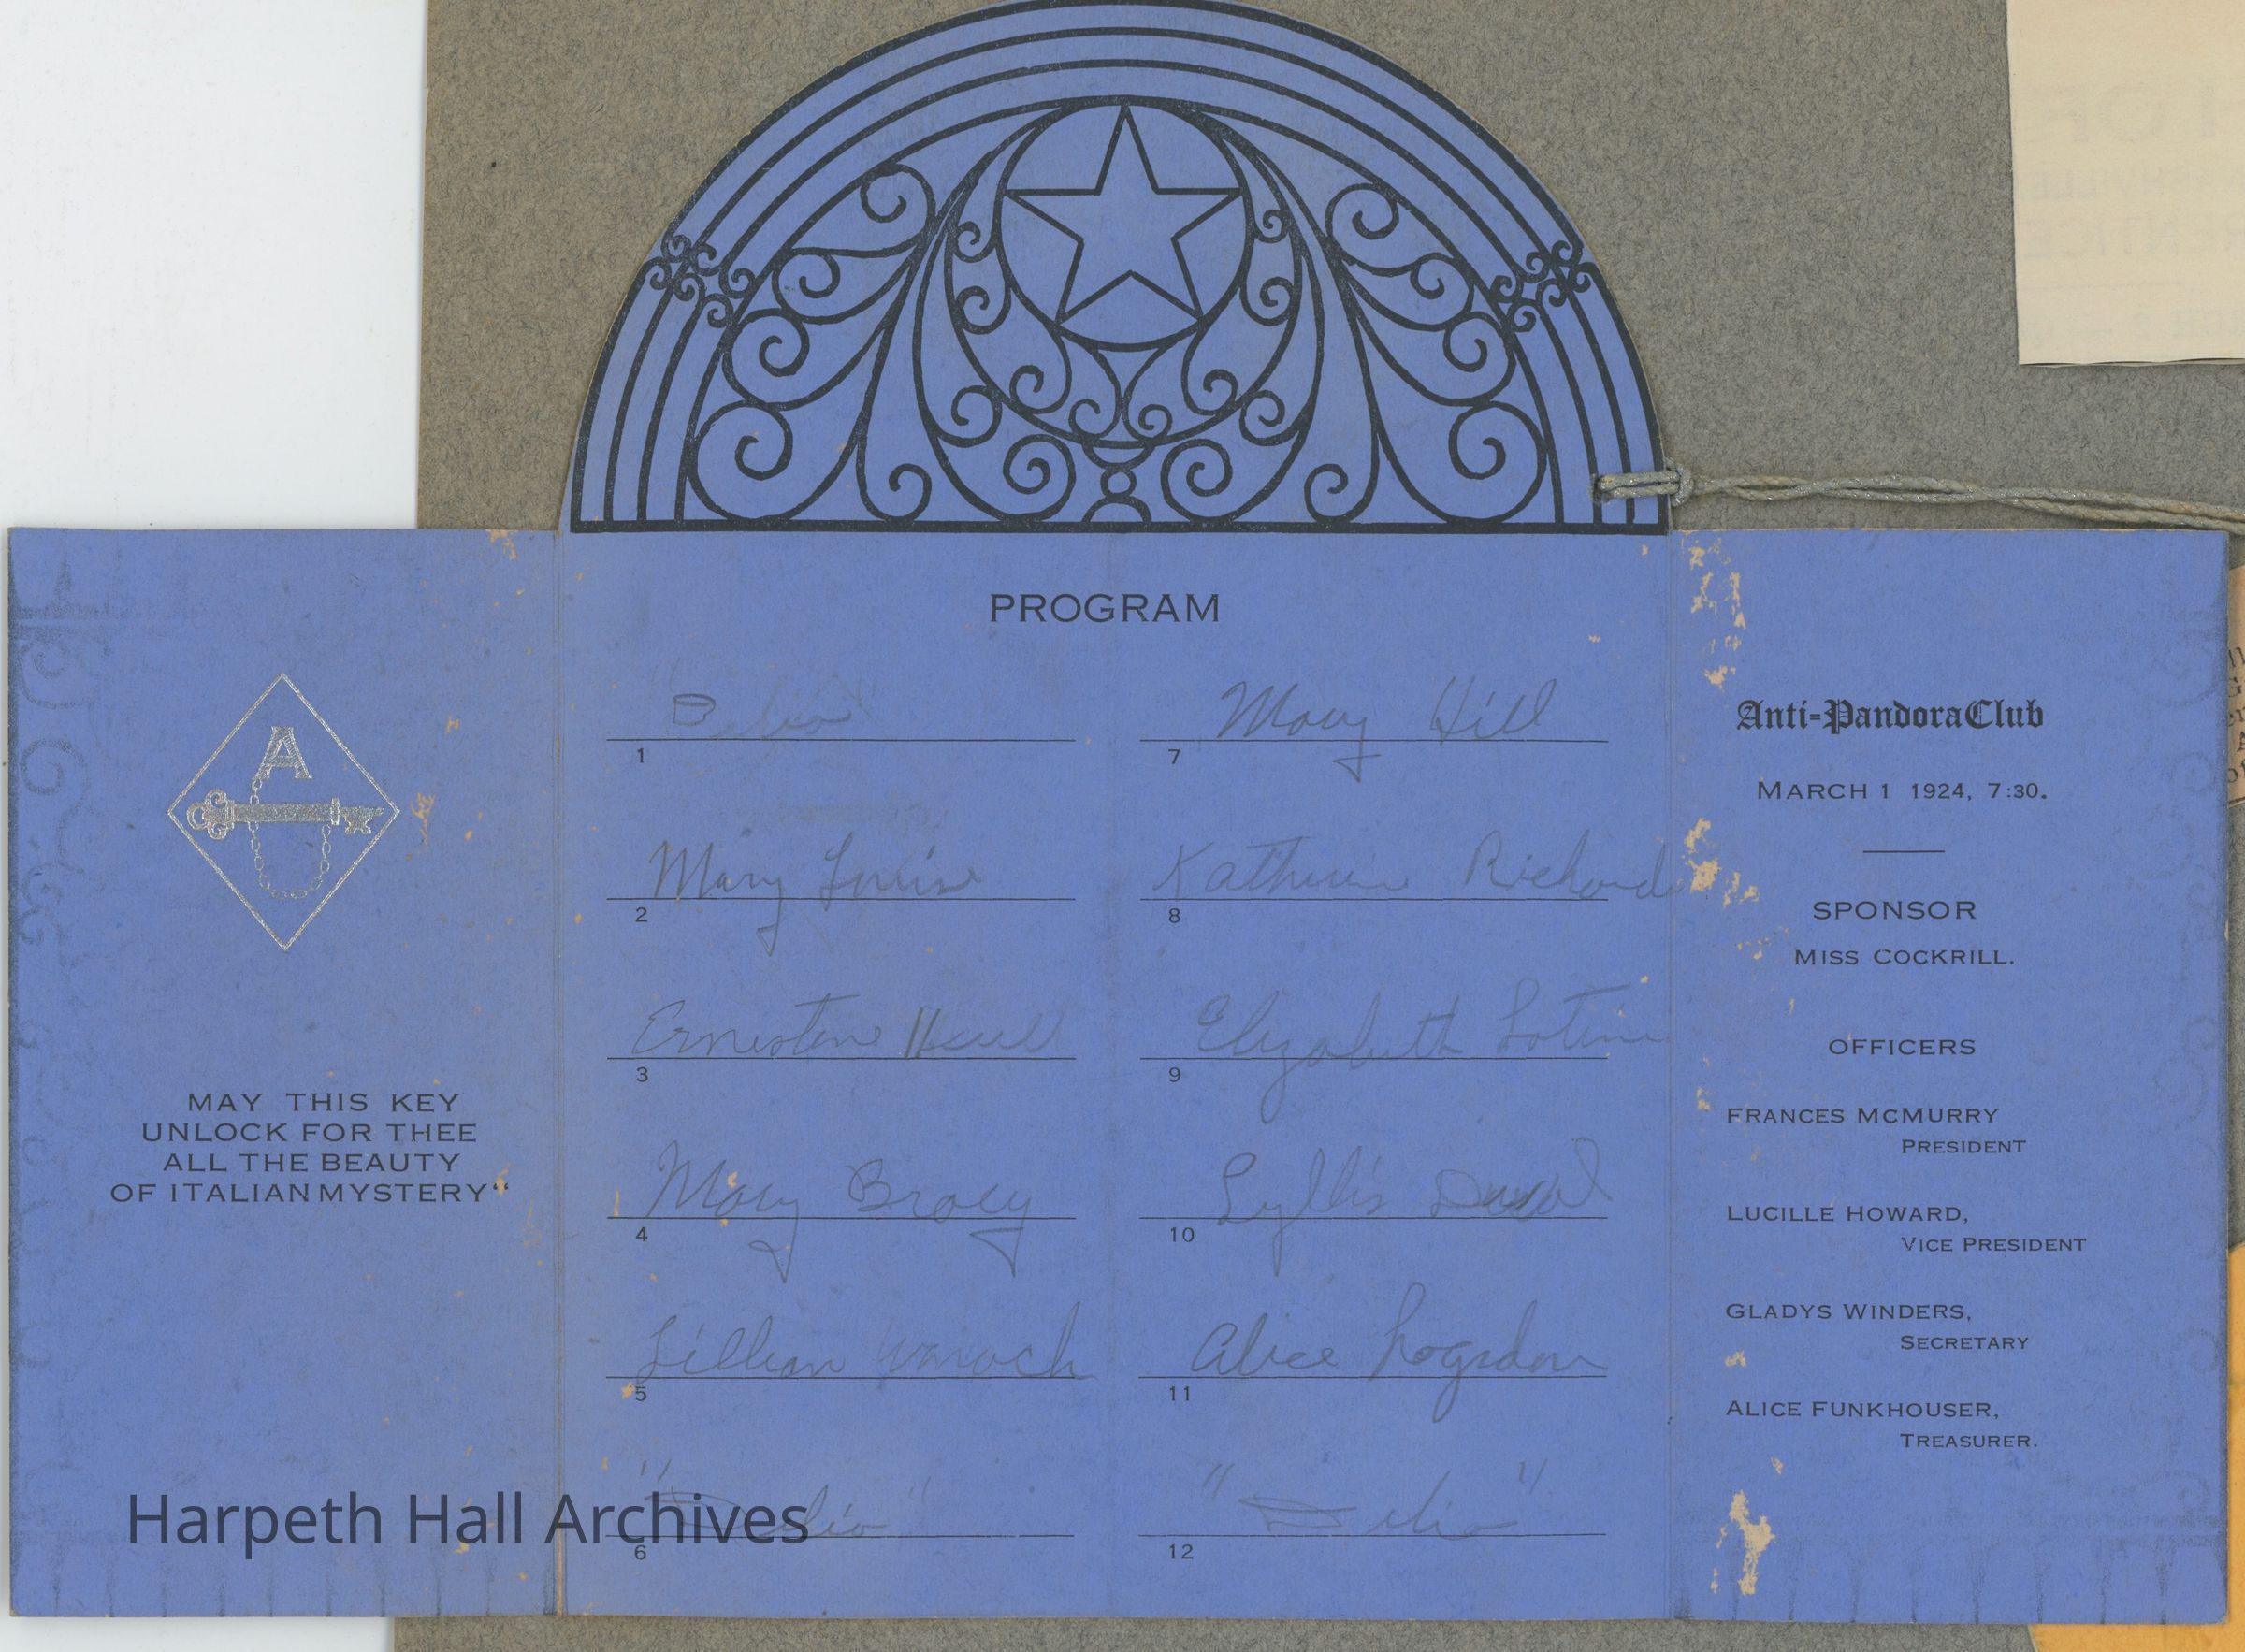 A
MAY THIS KEY
UNLOCK FOR THEE
ALL THE BEAUTY
OF ITALIAN MYSTERY“
PROGRAM
1
Mary Louise
2
Ernestine
3
Mary Bracy
4
Lillian
5
6
Mary Hill
7
Katherine Richards
8
Elizabeth
9
Lyllis
10
Alice Logsdon
11
"Delio"
12
Anti-Pandora Club
MARCH 1 1924, 7:30.
SPONSOR
MISS COCKRILL.
OFFICERS
FRANCES MCMURRY
PRESIDENT
LUCILLE HOWARD,
VICE PRESIDENT
GLADYS WINDERS,
SECRETARY
ALICE FUNKHOUSER,
TREASURER.
Harpeth Hall Archives